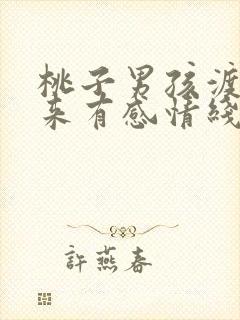 桃子男孩渡
来有感情綫
許燕春